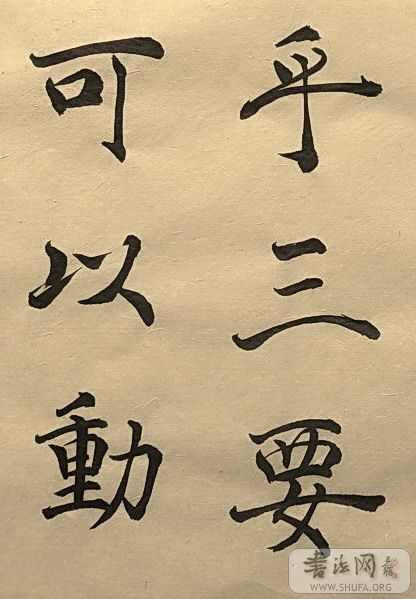 乎三要
可以動
書法网
WWW.SHUFA.ORG